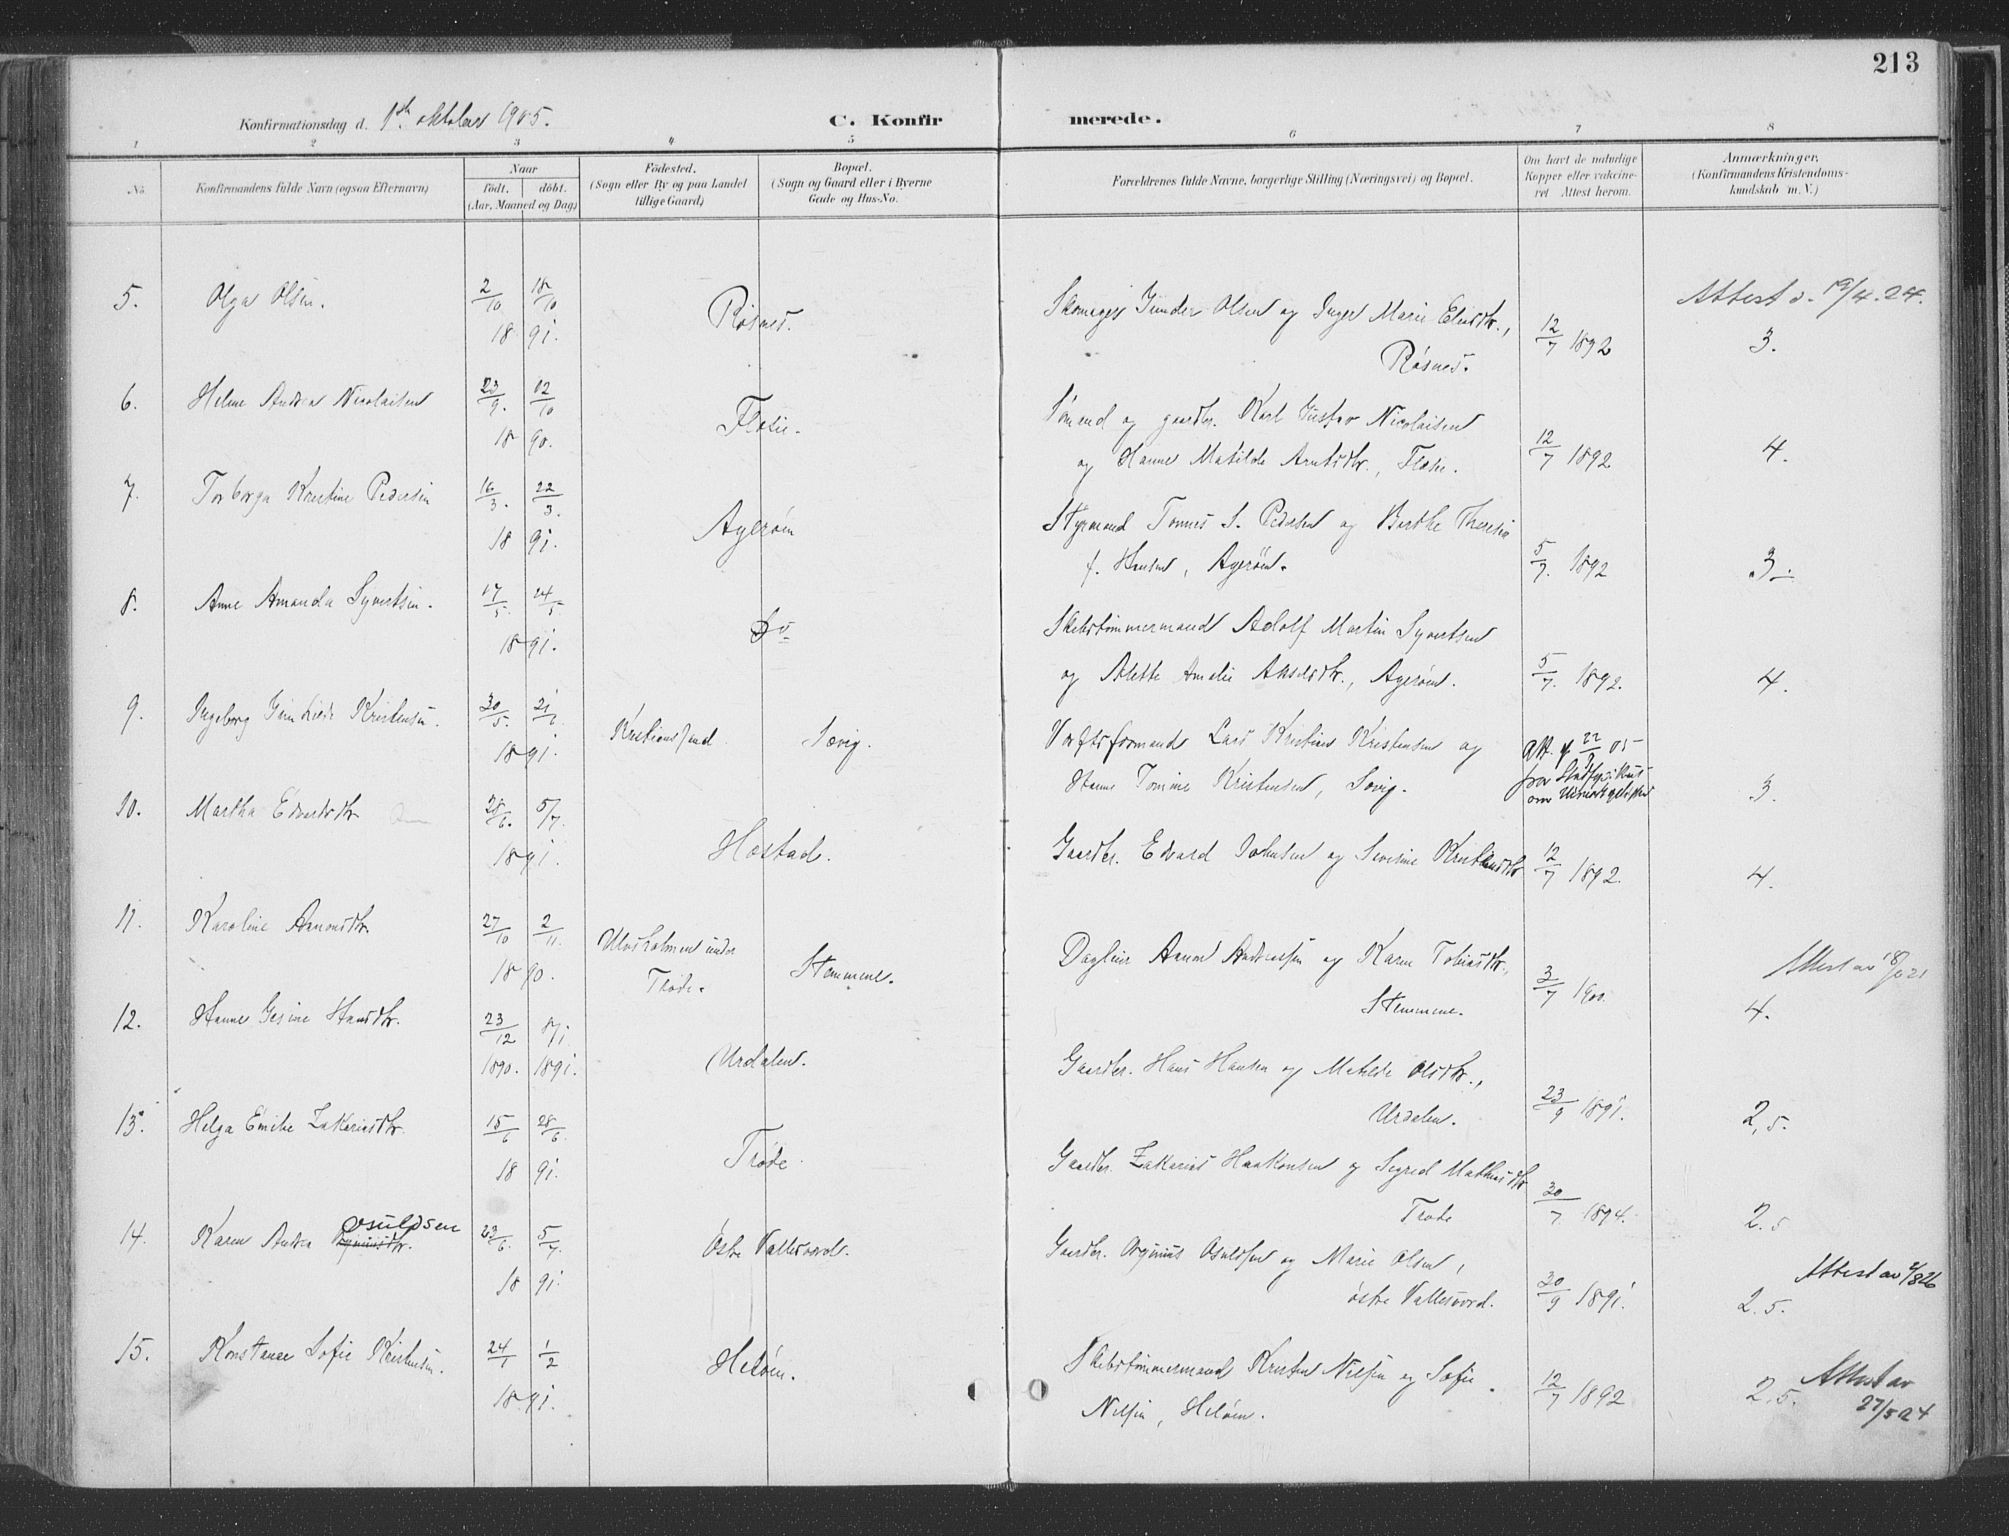 213
Konfirmationsdag d. 1ste oktober 1905.
C. Konfirmerede.
1 2 3 4 5 6 7 8
No.
Konfirmandens fulde Navn (ogsaa Efternavn)
Naar
födt. döbt.
(Aar, Maaned og Dag)
Födested.
(Sogn eller By og paa Landet
tillige Gaard)
Bopæl.
(Sogn og Gaard eller i Byerne
Gade og Hus-No.
Forældrenes fulde Navne, borgerlige Stilling (Næringsvei) og Bopæl.
Om havt de naturlige
Kopper eller vakcine-
ret Attest herom.
Anmærkninger,
(Konfirmandens Kristendoms-
kundskab m. V.)
5. Olga Olsen. 2/10 18/10 Røsnes. Gunder Olsen og Inger Marie
Attest d. 19/4.24.
18 91. Røsnes. 12/7 1892 3.
6. Helene Andrea Nicolaisen 23/9. 12/10 Sømand og gaardbr. Karl Gustav Nicolaisen
18 90. og Hanne Matilde 12/7 1892 4.
7. Torborga Kristine Pedersen 16/3. 22/3. Ågerøen Styrmand Tønnes S. Pedersen og Berthe Theresia
18 91. f. Hansen, Ågerøen. 5/7. 1892 3-
8. Anne Amanda Syvertsen. 17/5. 24/5 Do Skibstømmermand Adolf Martin Syvertsen
18 91. og Amalie Akselsdtr., Ågerøen. 5/7. 1892. 4.
9. Ingeborg Kristensen. 30/5. 21/6 Kristiansand Søvig. Værftsformand Lars Kristian Kristensen og
18 91. Hanne Tomine Kristensen, Søvig. Att. af 22/9 05 fra Stadsfysikus 3.
10. Martha Edvardsdtr. 28/6. 5/7. Hæstad. Gaardbr. Edvard Johnsen og Severine
18 91. 12/7 1892. 4.
11. Karoline Aanonsdtr. 27/10 2/11. Ulvsholmen under Trøde. Stemmene. Daglønner Aanon Andreassen og Karen Tobiasdtr.,
18 90. Stemmene. 3/7 1900. 4.
12. Hanne Gesine Hansdtr. 23/12 8/1. Urdalen. Gaardbr. Hans Hansen og Matilde Olsdtr.,
1890. 1891. Urdalen. 23/9 1891. 2,5.
13. Helga Emilie Zakariasdtr. 15/6 28/6. Trøde. Gaardbr. Zakarias Haakonsen og Sigrid Mathiasdtr
18 91. Trøde 30/7 1894. 2.5
14. Karen Andrea Osuldsen 23/6. 5/7. Østre Vallesværd. Gaardbr. Orginius Osuldsen og Marie Olsen,
18 91. østre Vallesværd. 30/9 1891. 2.5.
Attest av 4/8 26
15. Konstance Sofie Kristensen. 24/1 1/2 Heløen. Skibstømmermand Kristen Nilsen og Sofie
18 91. Nilsen, Heløen. 12/7 1892 2,5.
Attest av
27/5 24